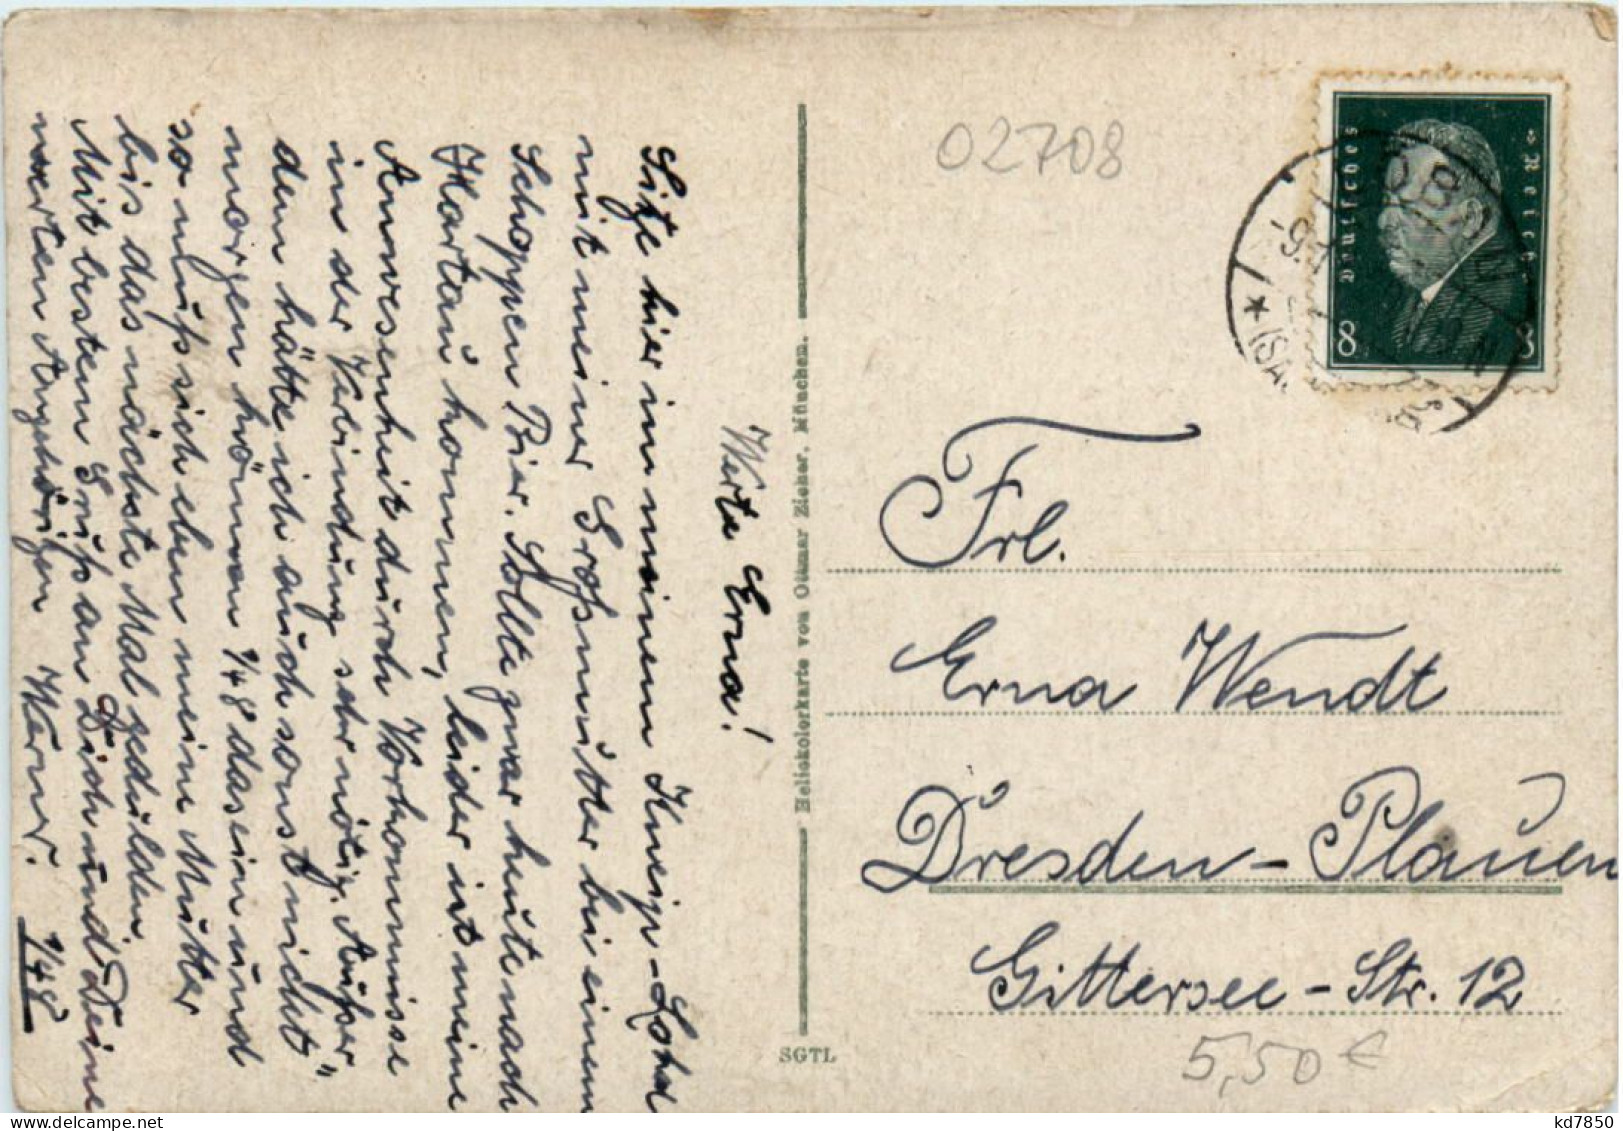 Werte Erna!
Sitze hier in meinem Kneip-Lokal
mit meiner Großmutter bei einem
Schoppen Bier. Sollte zwar heute nach
Hartau kommen, leider ist meine
Anwesenheit durch Vorkommnisse
in der Verbindung sehr nötig. Außer
dem hätte ich auch sonst nicht
morgen können ¼8 da sein und
so muß sich eben meine Mutter
bis das nächste Mal gedulden.
Mit bestem Gruß an Dich und Deine
werten Angehörigen Werner. ¼8
Helickolorkarte von Ottmar Zieher, München.
SGTL
02708
Deutsches Reich
8 8
Frl.
Erna Wendt
Dresden-Plauen
Gittersee-Str. 12
5,50 €
kd7850